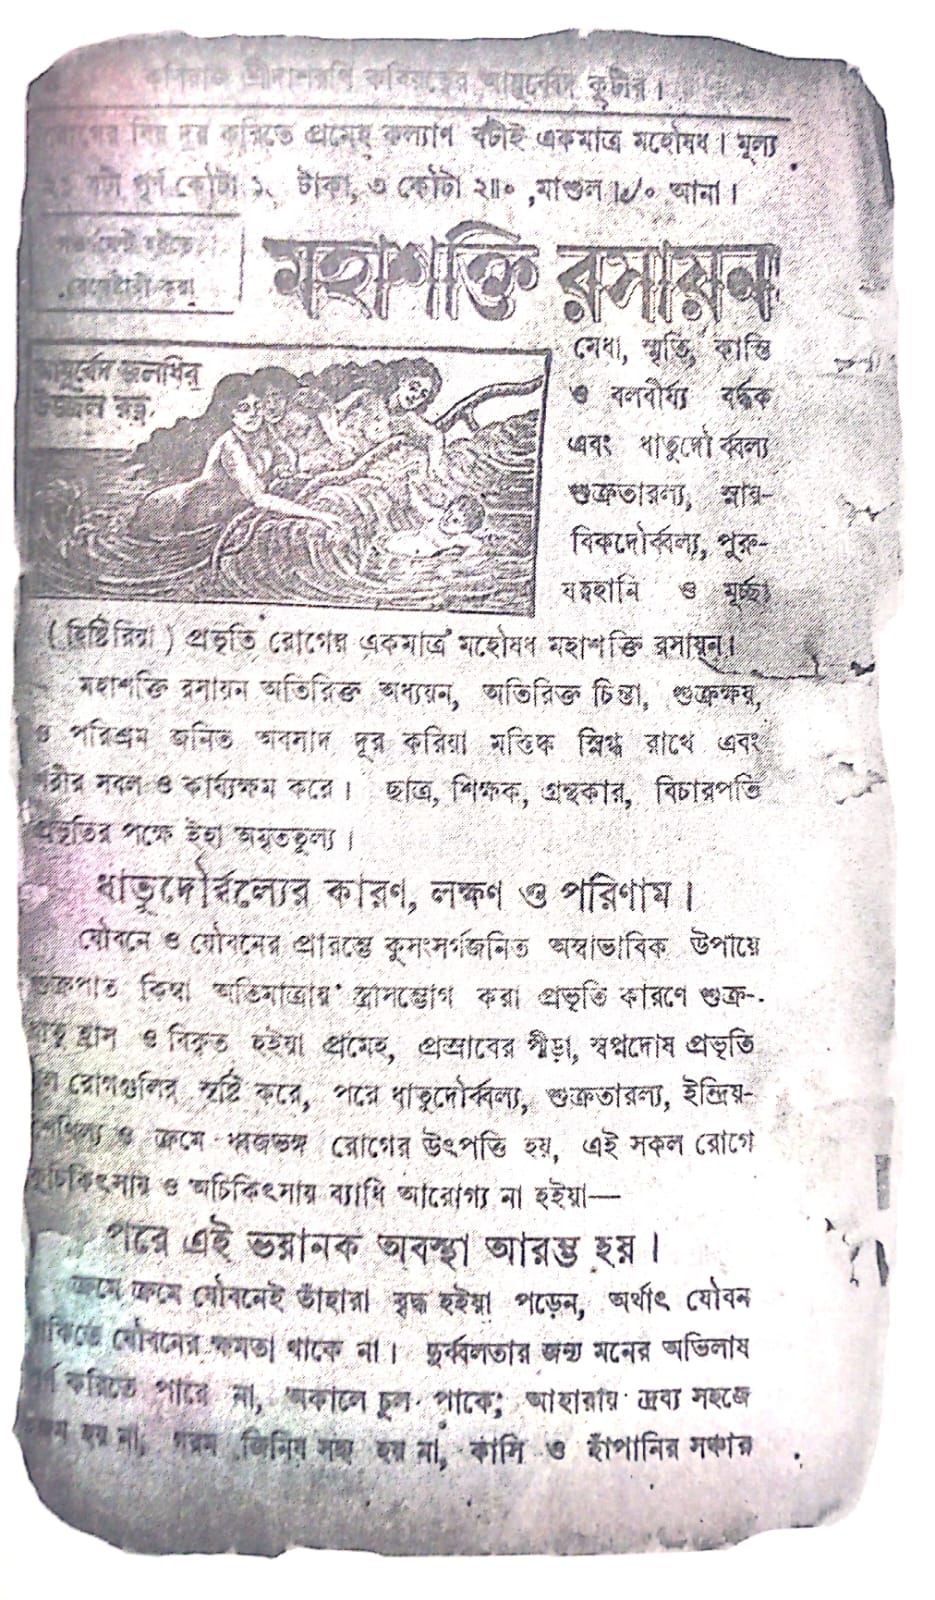 কবিরাজ শ্রীদাশরথি কবিরত্নের আয়ুর্ব্বেদ কুটীর।
রোগের বিষ দূর করিতে প্রমেহ কল্যাণ বটীই একমাত্র মহৌষধ। মূল্য
বটী পূর্ণ কৌটা ১৲ টাকা, ৩ কৌটা ২॥০, মাশুল ।৵০ আনা।
গভর্ণমেন্ট হইতে
রেজেষ্টারী করা
মহাশক্তি রসায়ন
আয়ুর্ব্বেদ জলধির
উজ্জ্বল রত্ন
মেধা, স্মৃতি, কান্তি
ও বলবীর্য্য বর্দ্ধক
এবং ধাতুদৌর্ব্বল্য
শুক্রতারল্য, স্নায়-
বিকদৌর্ব্বল্য, পুরু-
ষত্বহানি ও মূর্চ্ছা
(হিষ্টিরিয়া) প্রভৃতি রোগের একমাত্র মহৌষধ মহাশক্তি রসায়ন।
মহাশক্তি রসায়ন অতিরিক্ত অধ্যয়ন, অতিরিক্ত চিন্তা, শুক্রক্ষয়,
ও পরিশ্রম জনিত অবসাদ দূর করিয়া মস্তিষ্ক স্নিগ্ধ রাখে এবং
শরীর সবল ও কার্য্যক্ষম করে। ছাত্র, শিক্ষক, গ্রন্থকার, বিচারপতি
প্রভৃতির পক্ষে ইহা অমৃততুল্য।
ধাতুদৌর্ব্বল্যের কারণ, লক্ষণ ও পরিণাম।
যৌবনে ও যৌবনের প্রারম্ভে কুসংসর্গজনিত অস্বাভাবিক উপায়ে
শুক্রপাত কিম্বা অতিমাত্রায় স্ত্রীসম্ভোগ করা প্রভৃতি কারণে শুক্র-
ধাতু হ্রাস ও বিকৃত হইয়া প্রমেহ, প্রস্রাবের পীড়া, স্বপ্নদোষ প্রভৃতি
রোগগুলির সৃষ্টি করে, পরে ধাতুদৌর্ব্বল্য, শুক্রতারল্য, ইন্দ্রিয়-
শৈথিল্য ও ক্রমে ধ্বজভঙ্গ রোগের উৎপত্তি হয়, এই সকল রোগে
কুচিকিৎসায় ও অচিকিৎসায় ব্যাধি আরোগ্য না হইয়া—
পরে এই ভয়ানক অবস্থা আরম্ভ হয়।
ক্রমে ক্রমে যৌবনেই তাঁহারা বৃদ্ধ হইয়া পড়েন, অর্থাৎ যৌবন
থাকিতে যৌবনের ক্ষমতা থাকে না। দুর্ব্বলতার জন্য মনের অভিলাষ
পূর্ণ করিতে পারে না, অকালে চুল পাকে; আহারীয় দ্রব্য সহজে
হজম হয় না, গরম জিনিষ সহ্য হয় না, কাসি ও হাঁপানির সঞ্চার